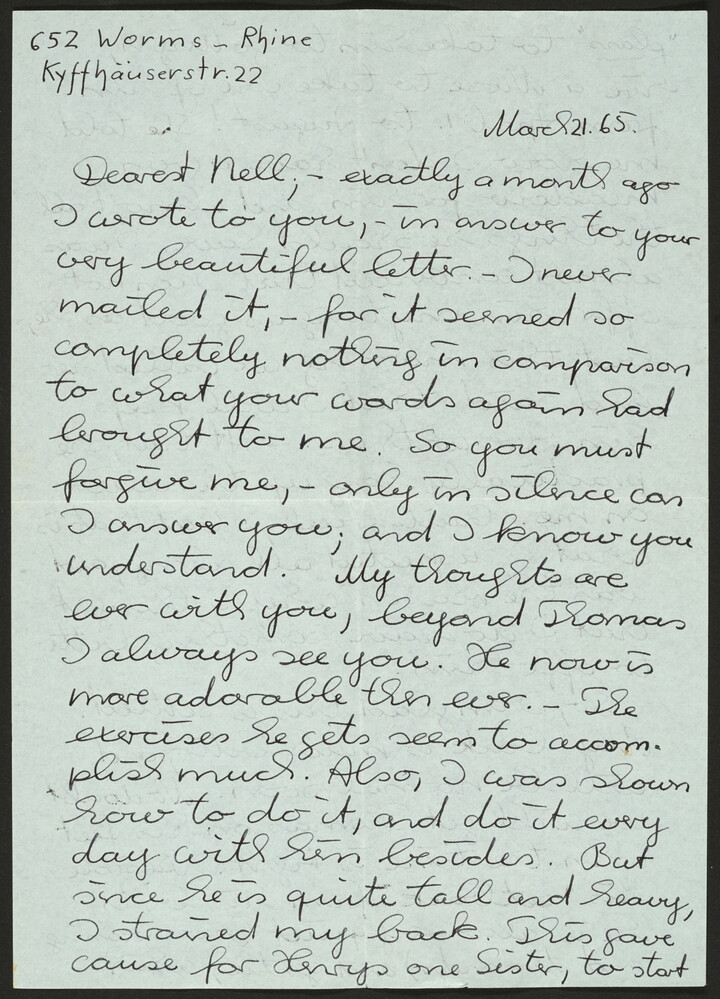 652 Worms - Rhine
Kyffhäuserstr. 22
March 21. 65.
Dearest Nell; - exactly a month ago
I wrote to you, - in answer to your
very beautiful letter. - I never
mailed it, - for it seemed so
completely nothing in comparison
to what your words again had
brought to me. So you must
forgive me, - only in silence can
I answer you; and I know you
understand. My thoughts are
ever with you, beyond Thomas
I always see you. He now is
more adorable then ever. - The
exercises he gets seem to accom-
plish much. Also, I was shown
how to do it, and do it every
day with him besides. But
since he is quite tall and heavy,
I strained my back. This gave
cause for Henrys one Sister, to start